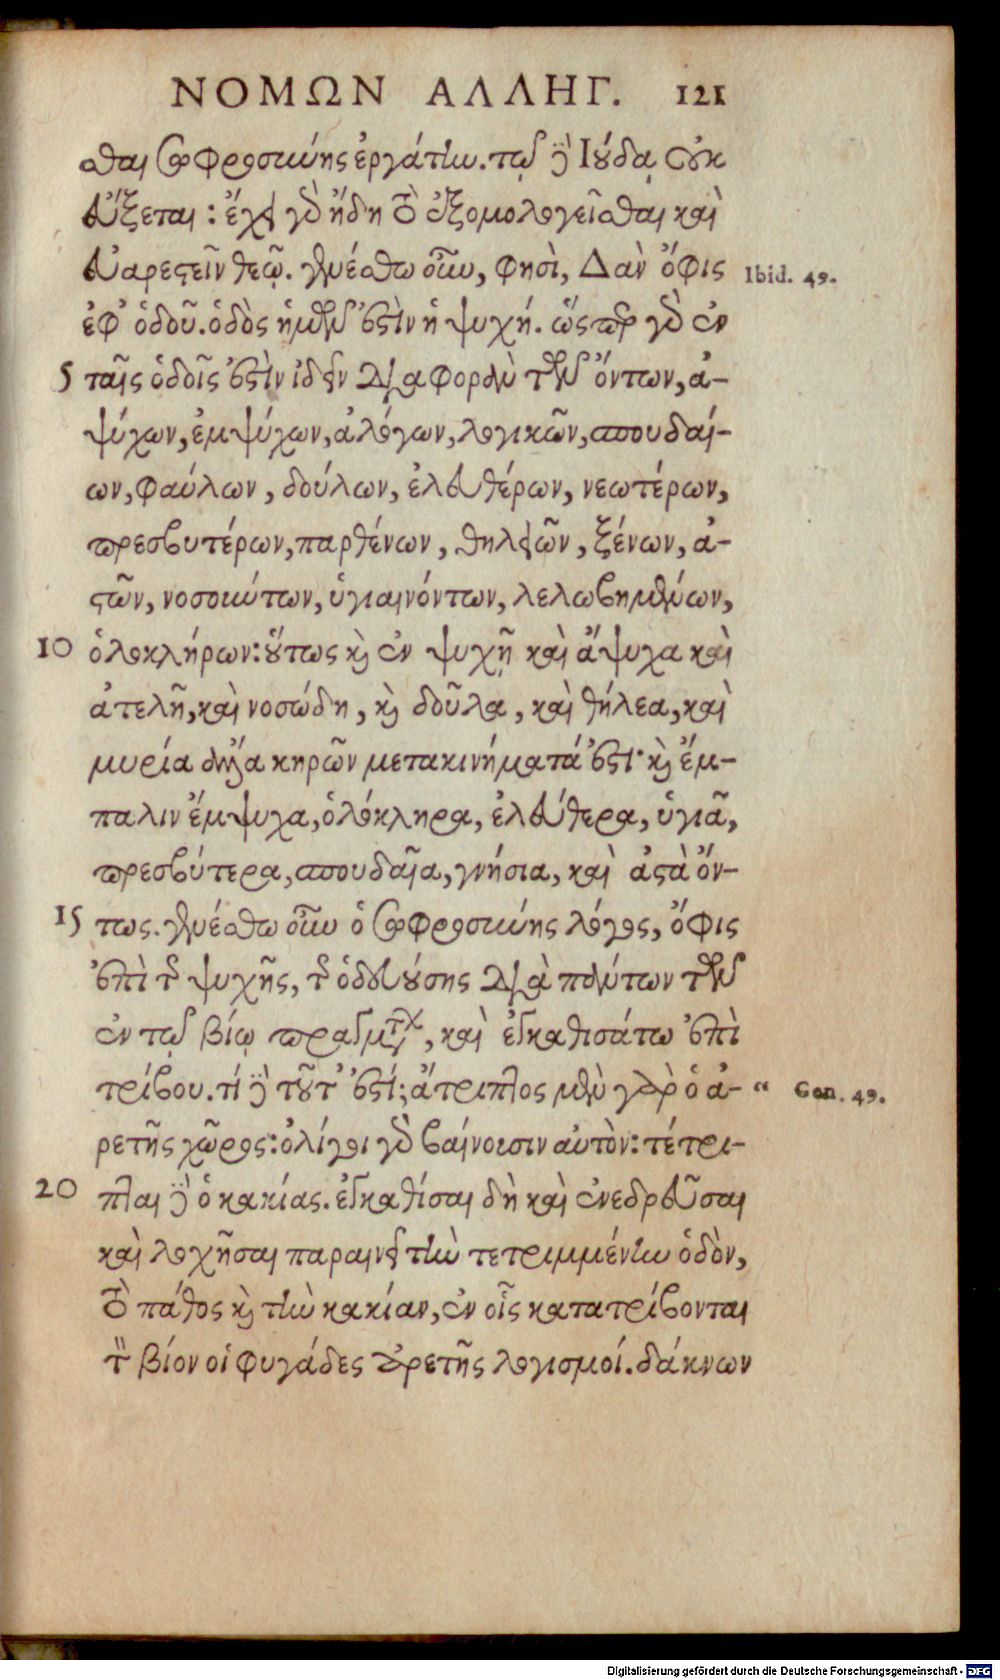 ΝΟΜΩΝ ΑΛΛΗΓ. 121
σθαι σωφροσύνης ἐργάτην. τῷ δὲ Ιούδᾳ οὐκ
εὔξεται: ἔχει γὰρ ἤδη τὸ ἐξομολογεῖσθαι καὶ
εὐαρεστεῖν θεῷ. γενέσθω οὖν, φησὶ, Δὰν ὄφις
Ibid. 49.
ἐφ᾽ ὁδοῦ. ὁδὸς ἡμῶν ἐστὶν ἡ ψυχή. ὥσπερ γὰρ ἐν
5 ταῖς ὁδοῖς ἐστὶν ἰδεῖν διαφορὰν τῶν ὄντων, ἀ-
ψύχων, ἐμψύχων, ἀλόγων, λογικῶν, σπουδαί-
ων, φαύλων, δούλων, ἐλευθέρων, νεωτέρων,
πρεσβυτέρων, παρθένων, θηλειῶν, ξένων, ἀ-
στῶν, νοσούντων, ὑγιαινόντων, λελωβημένων,
10 ὁλοκλήρων: οὕτως καὶ ἐν ψυχῇ καὶ ἄψυχα καὶ
ἀτελῆ, καὶ νοσώδη, καὶ δοῦλα, καὶ θήλεα, καὶ
μυρία ἄλλα κηρῶν μετακινήματά ἐστι· καὶ ἔμ-
παλιν ἔμψυχα, ὁλόκληρα, ἐλεύθερα, ὑγιᾶ,
πρεσβύτερα, σπουδαῖα, γνήσια, καὶ ἀστὰ ὄν-
15 τως. γενέσθω οὖν ὁ σωφροσύνης λόγος, ὄφις
ἐπὶ τῆς ψυχῆς, τῆς ὁδευούσης διὰ πάντων τῶν
ἐν τῷ βίῳ πραγμάτων, καὶ ἐγκαθισάτω ἐπὶ
τρίβου. τί δὲ τοῦτ᾽ ἐστί; ἄτριπτος μὲν γὰρ ὁ ἀ- “
Gen. 49.
ρετῆς χῶρος: ὀλίγοι γὰρ βαίνουσιν αὐτὸν: τέτρι-
20 πται δὲ ὁ κακίας. ἐγκαθίσαι δὴ καὶ ἐνεδρεῦσαι
καὶ λοχῆσαι παραινεῖ τὴν τετριμμένην ὁδὸν,
τὸ πάθος καὶ τὴν κακίαν, ἐν οἷς κατατρίβονται
τὸν βίον οἱ φυγάδες ἀρετῆς λογισμοί. δάκνων
Digitalisierung gefördert durch die Deutsche Forschungsgemeinschaft - DFG